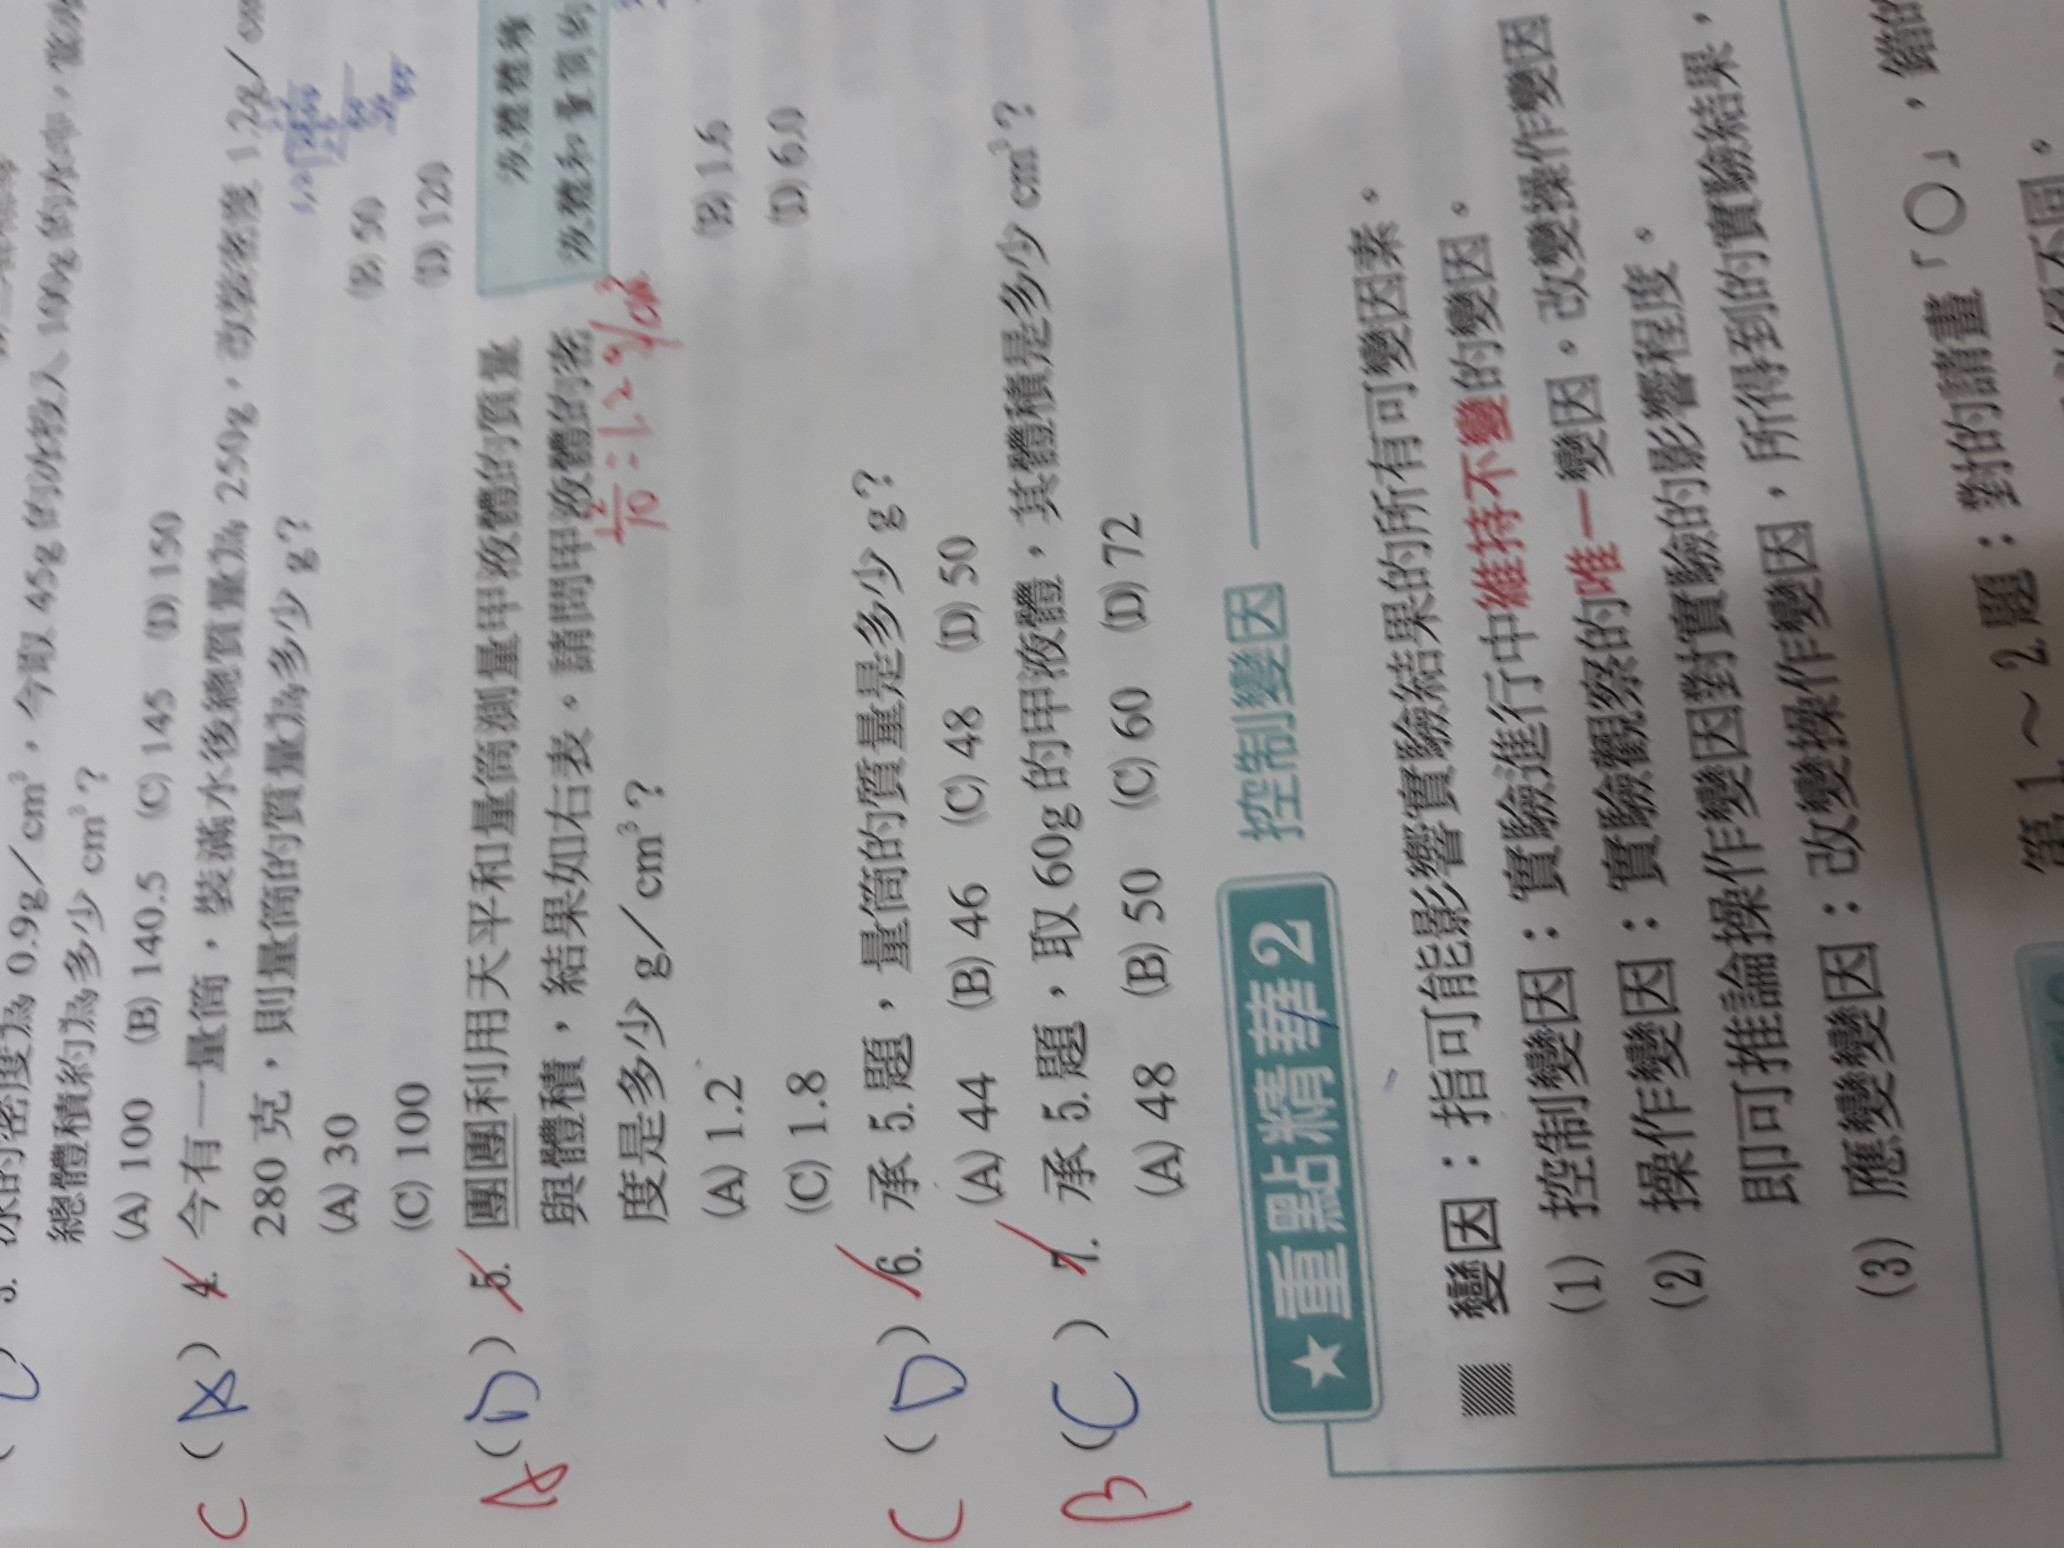 的密度為 0.9g／cm³，今取 45g 的冰投入 100g 的水中，
總體積約為多少 cm³？
(A) 100 (B) 140.5 (C) 145 (D) 150
C ( A ) 4. 今有一量筒，裝滿水後總質量為 250g，改裝密度 1.2g／
280 克，則量筒的質量為多少 g？
(A) 30 (B) 50
(C) 100 (D) 120
A ( D ) 5. 團團利用天平和量筒測量甲液體的質量
與體積，結果如右表。請問甲液體的密
度是多少 g／cm³？
液體體積
液體和量筒的
12/10 = 1.2 g/cm³
(A) 1.2 (B) 1.6
(C) 1.8 (D) 6.0
C ( D ) 6. 承 5.題，量筒的質量是多少 g？
(A) 44 (B) 46 (C) 48 (D) 50
B ( C ) 7. 承 5.題，取 60g 的甲液體，其體積是多少 cm³？
(A) 48 (B) 50 (C) 60 (D) 72
★重點精華2 控制變因
變因：指可能影響實驗結果的所有可變因素。
(1) 控制變因：實驗進行中維持不變的變因。
(2) 操作變因：實驗觀察的唯一變因。改變操作變因
即可推論操作變因對實驗的影響程度。
(3) 應變變因：改變操作變因，所得到的實驗結果，
第 1～2 題：對的請畫「○」，錯的
不同。